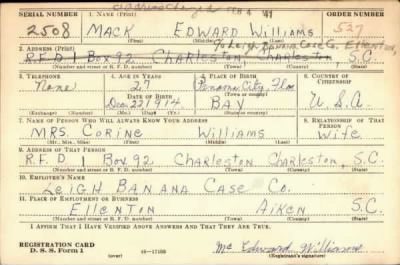 address change FEB 4 '41
SERIAL NUMBER 1. NAME (Print) ORDER NUMBER
2508 MACK EDWARD WILLIAMS 527
(First) (Middle) (Last)
% Leigh Banana Case Co. Ellenton,
2. ADDRESS (Print)
R.F.D 1 Box 92 Charleston, Charleston, S.C.
(Number and street or R. F. D. number) (Town) (County) (State)
3. TELEPHONE 4. AGE IN YEARS 5. PLACE OF BIRTH 6. COUNTRY OF CITIZENSHIP
None 27 Panama City, Fla
DATE OF BIRTH
Dec. 22, 1914 BAY U.S.A
(Exchange) (Number) (Mo.) (Day) (Yr.) (State or country)
7. NAME OF PERSON WHO WILL ALWAYS KNOW YOUR ADDRESS 8. RELATIONSHIP OF THAT PERSON
MRS. Corine Williams Wife
(Mr., Mrs., Miss) (First) (Middle) (Last)
9. ADDRESS OF THAT PERSON
R.F.D 1 Box 92 Charleston Charleston, S.C.
(Number and street or R. F. D. number) (Town) (County) (State)
10. EMPLOYER'S NAME
LEIGH BANANA CASE Co.
11. PLACE OF EMPLOYMENT OR BUSINESS
ELLENTON AIKEN S.C.
(Number and street or R. F. D. number) (Town) (County) (State)
I AFFIRM THAT I HAVE VERIFIED ABOVE ANSWERS AND THAT THEY ARE TRUE.
REGISTRATION CARD
D. S. S. Form 1 (over) 16—17105 Mc Edward Williams
(Registrant's signature)